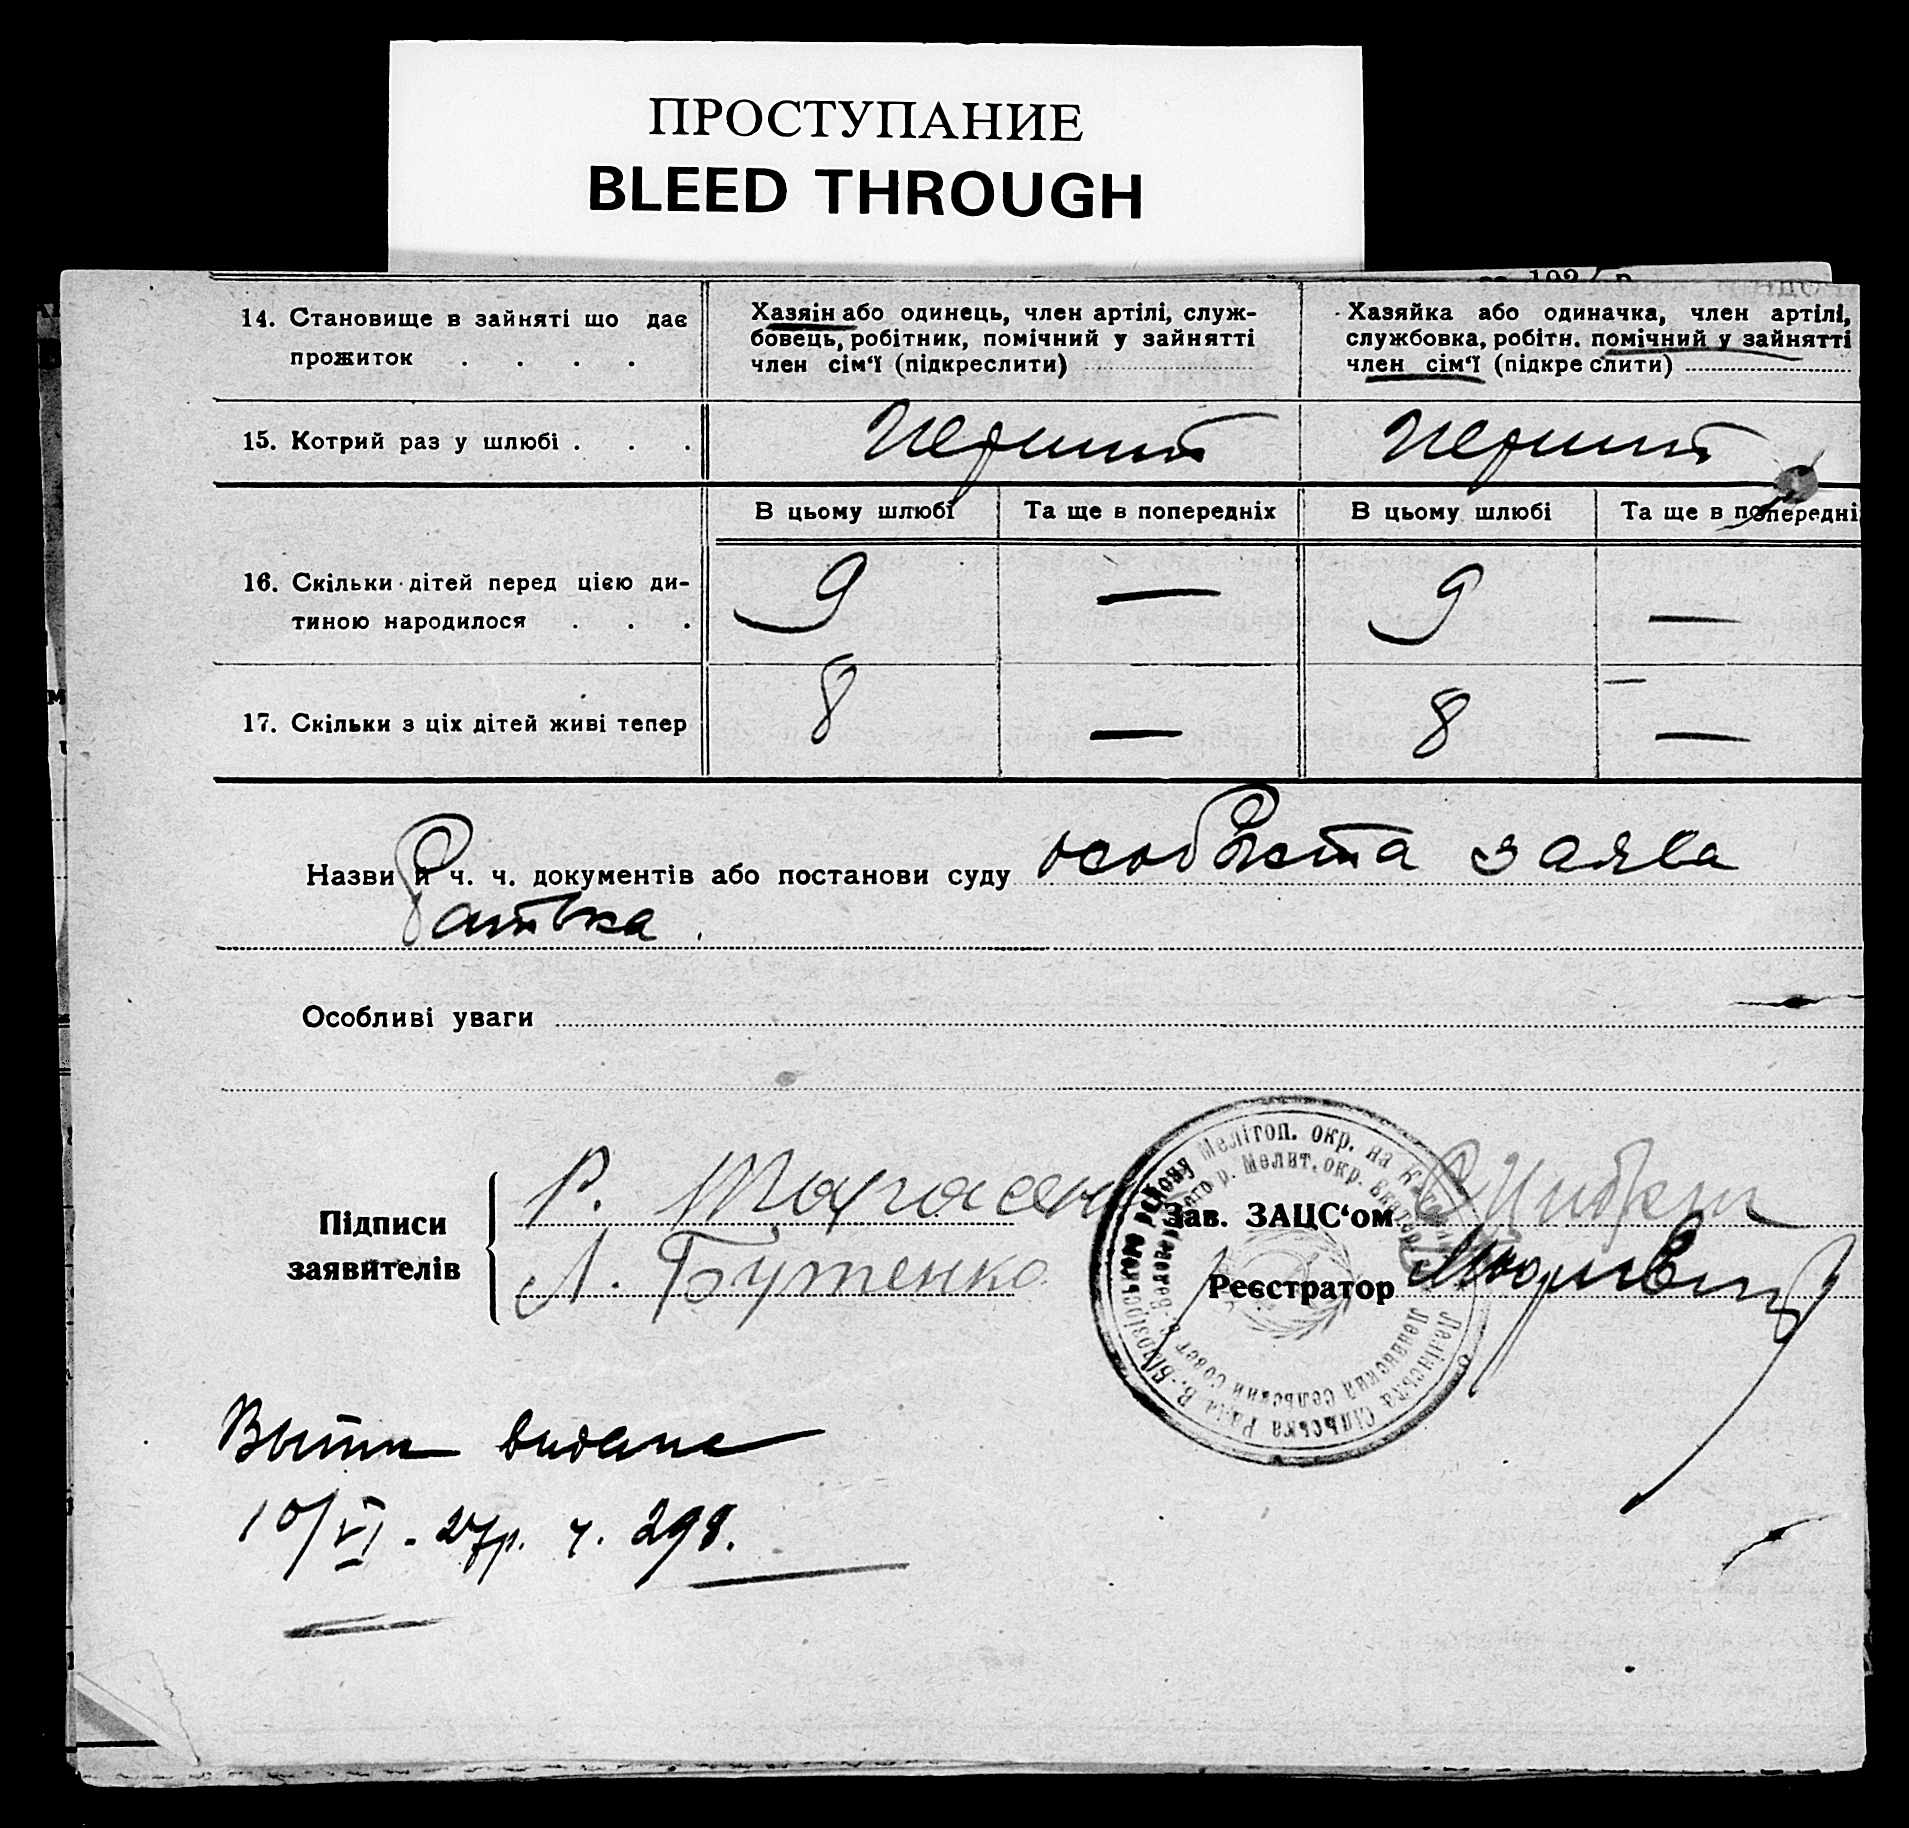 ПРОСТУПАНИЕ
BLEED THROUGH
14. Становище в зайняті що дає прожиток . . . .
Хазяін або одинець, член артілі, служ-
бовець, робітник, помічний у зайнятті
член сім‘ї (підкреслити)
Хазяйка або одиначка, член артілі,
службовка, робітн. помічний у зайнятті
член сім‘ї (підкреслити)
15. Котрий раз у шлюбі . . .
перший
перший
В цьому шлюбі
Та ще в попередніх
В цьому шлюбі
Та ще в попередні
16. Скільки дітей перед цією ди-
тиною народилося . . .
9 — 9 —
17. Скільки з ціх дітей живі тепер
8 — 8 —
Назви й ч. ч. документів або постанови суду особиста заява
батька.
Особливі уваги
Підписи
заявителів
Р.
Л. Бутенко
Зав. ЗАЦС‘ом
Реєстратор
В.-Білозірського району Мелітоп. окр. на
Сільська Рада
р. Мелит. окр.
Ленинский сельский совет
Витяг видане
10/VI - 27р. ч. 298.